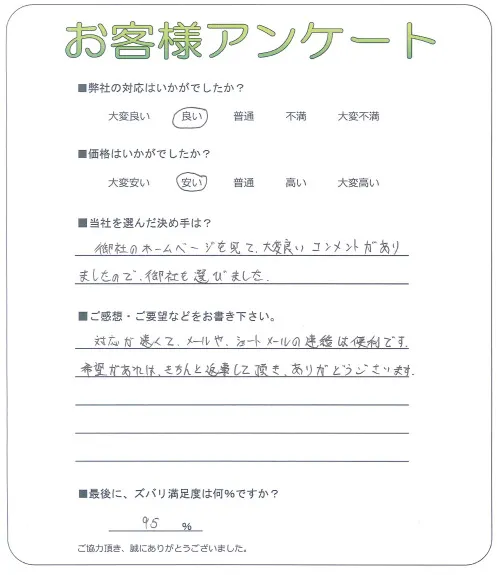 お客様アンケート
■弊社の対応はいかがでしたか？
大変良い 良い 普通 不満 大変不満
■価格はいかがでしたか？
大変安い 安い 普通 高い 大変高い
■当社を選んだ決め手は？
御社のホームページを見て、大変良いコンメントがあり
ましたので、御社を選びました.
■ご感想・ご要望などをお書き下さい。
対応が速くて、メールや、ショートメールの連絡は便利です.
希望があれば、きちんと返事して頂き、ありがとうございます.
■最後に、ズバリ満足度は何％ですか？
95 %
ご協力頂き、誠にありがとうございました。